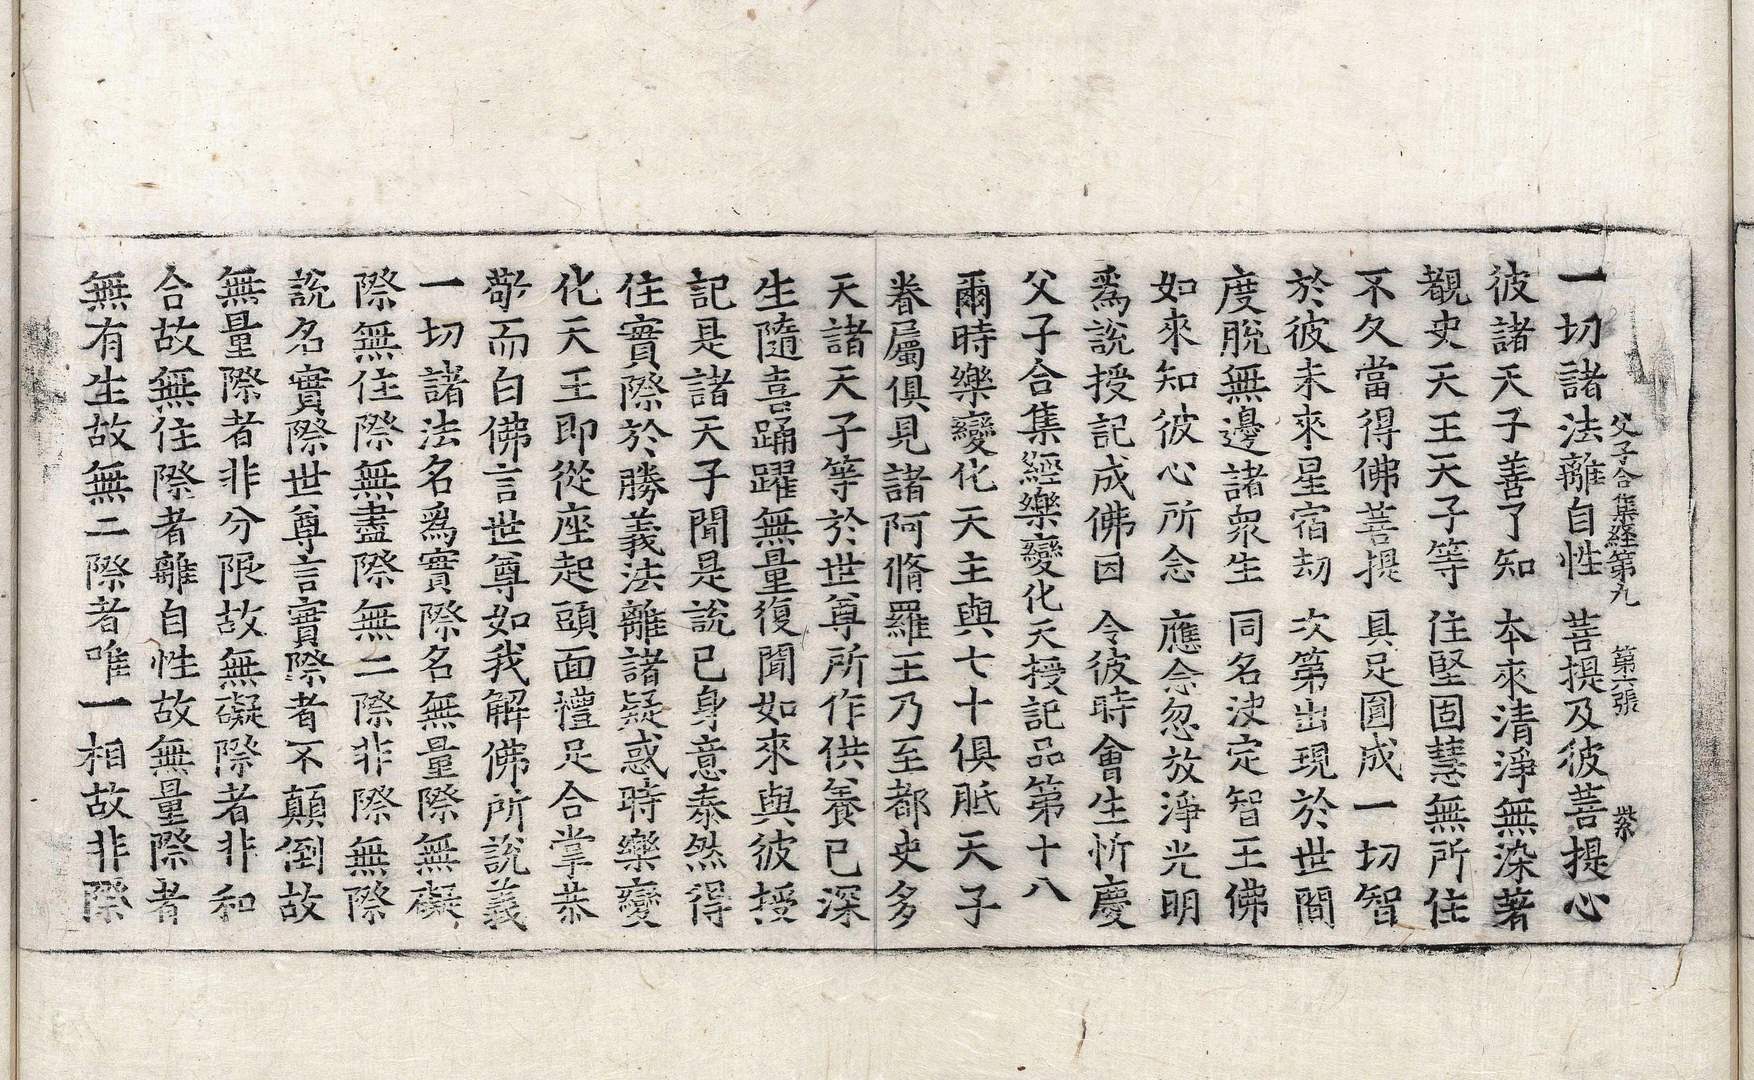 父子合集經第九　第六張　紫
一切諸法離自性　菩提及彼菩提心
彼諸天子善了知　本來清淨無染著
覩史天王天子等　住堅固慧無所住
不久當得佛菩提　具足圓成一切智
於彼未來星宿劫　次第出現於世間
度脫無邊諸衆生　同名決定智王佛
如來知彼心所念　應念忽放淨光明
爲說授記成佛因　令彼時會生忻慶
父子合集經樂變化天授記品第十八
爾時樂變化天主與七十俱胝天子
眷屬俱見諸阿脩羅王乃至都史多
天諸天子等於世尊所作供養已深
生隨喜踊躍無量復聞如來與彼授
記是諸天子聞是說已身意泰然得
住實際於勝義法離諸疑惑時樂變
化天王即從座起頭面禮足合掌恭
敬而白佛言世尊如我解佛所說義
一切諸法名爲實際名無量際無礙
際無住際無盡際無二際非際無際
說名實際世尊言實際者不顛倒故
無量際者非分限故無礙際者非和
合故無住際者離自性故無量際者
無有生故無二際者唯一相故非際